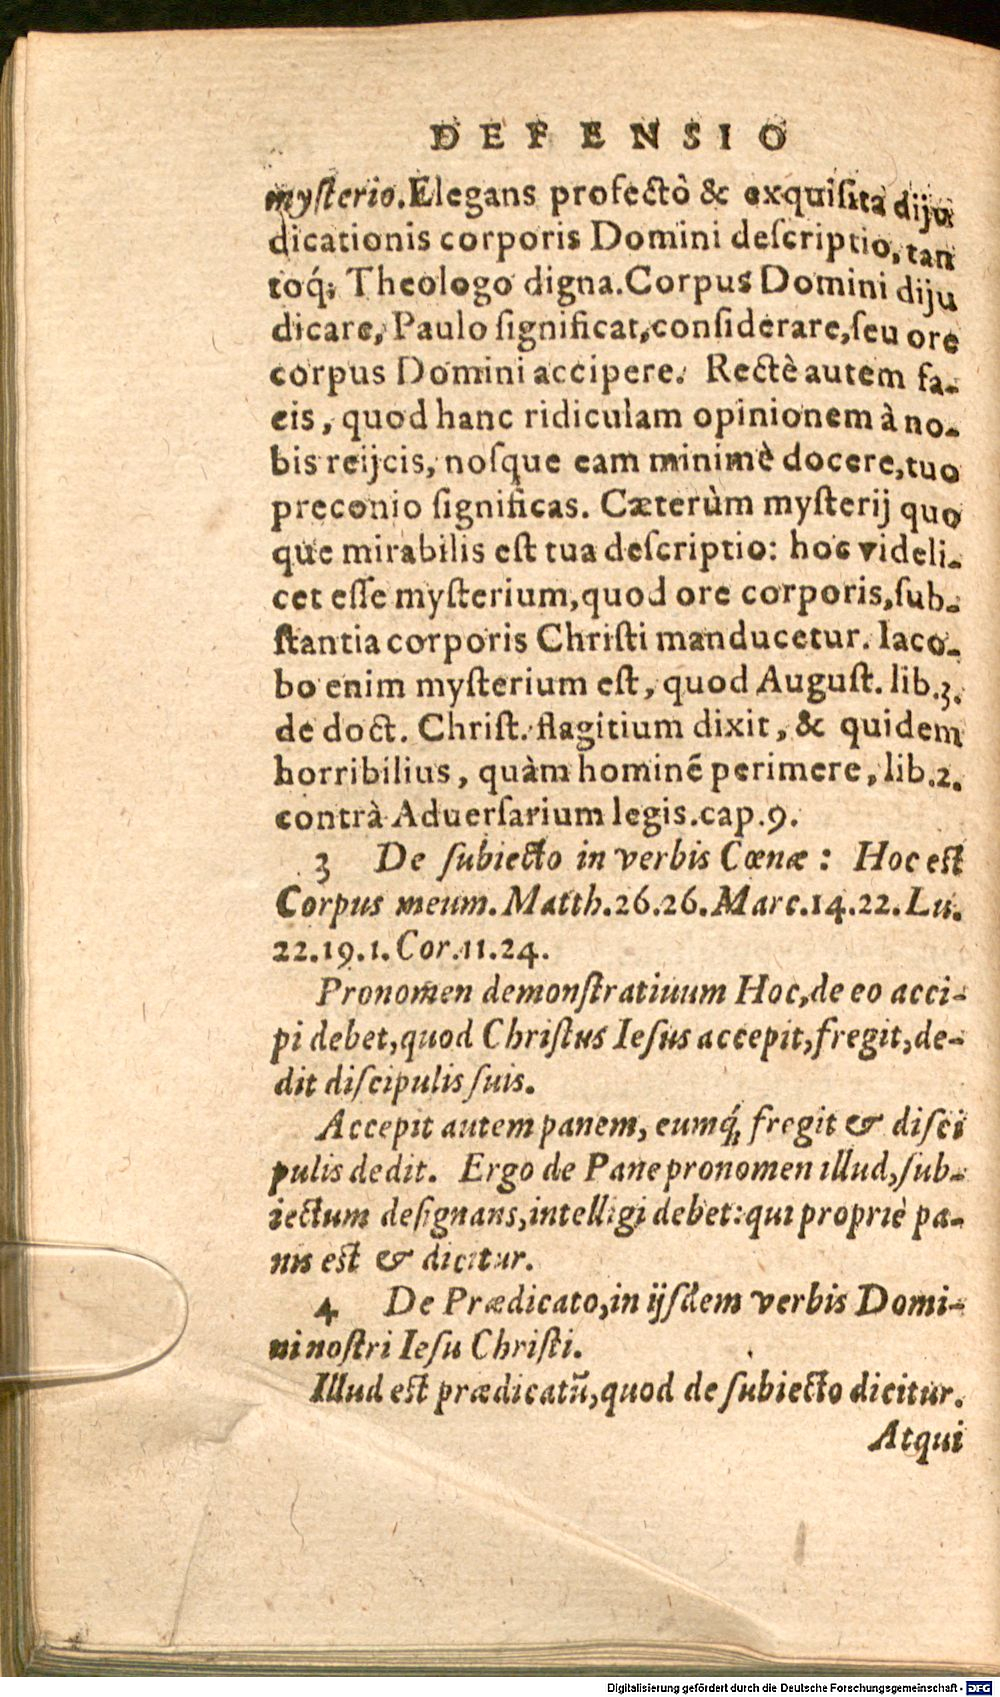 DEFENSIO
mysterio. Elegans profectò & exquisita diju
dicationis corporis Domini descriptio, tan
toq́; Theologo digna. Corpus Domini diju
dicare, Paulo significat, considerare, seu ore
corpus Domini accipere. Rectè autem fa-
cis, quod hanc ridiculam opinionem à no-
bis reijcis, nosque eam minimè docere, tuo
preconio significas. Cæterùm mysterij quo
que mirabilis est tua descriptio: hoc videli-
cet esse mysterium, quod ore corporis, sub-
stantia corporis Christi manducetur. Iaco-
bo enim mysterium est, quod August. lib. 3.
de doct. Christ. flagitium dixit, & quidem
horribilius, quàm hominẽ perimere, lib. 2.
contrà Aduersarium legis. cap. 9.
3 De subiecto in verbis Cœnæ: Hoc est
Corpus meum. Matth. 26. 26. Marc. 14. 22. Lu.
22. 19. 1. Cor. 11. 24.
Pronomen demonstratiuum Hoc, de eo acci-
pi debet, quod Christus Iesus accepit, fregit, de-
dit discipulis suis.
Accepit autem panem, eumq́; fregit & disci
pulis dedit. Ergo de Pane pronomen illud, sub-
iectum designans, intelligi debet: qui propriè pa-
nis est & dicitur.
4 De Prædicato, in ijsdem verbis Domi-
ni nostri Iesu Christi.
Illud est prædicatũ, quod de subiecto dicitur.
Atqui
Digitalisierung gefördert durch die Deutsche Forschungsgemeinschaft - DFG